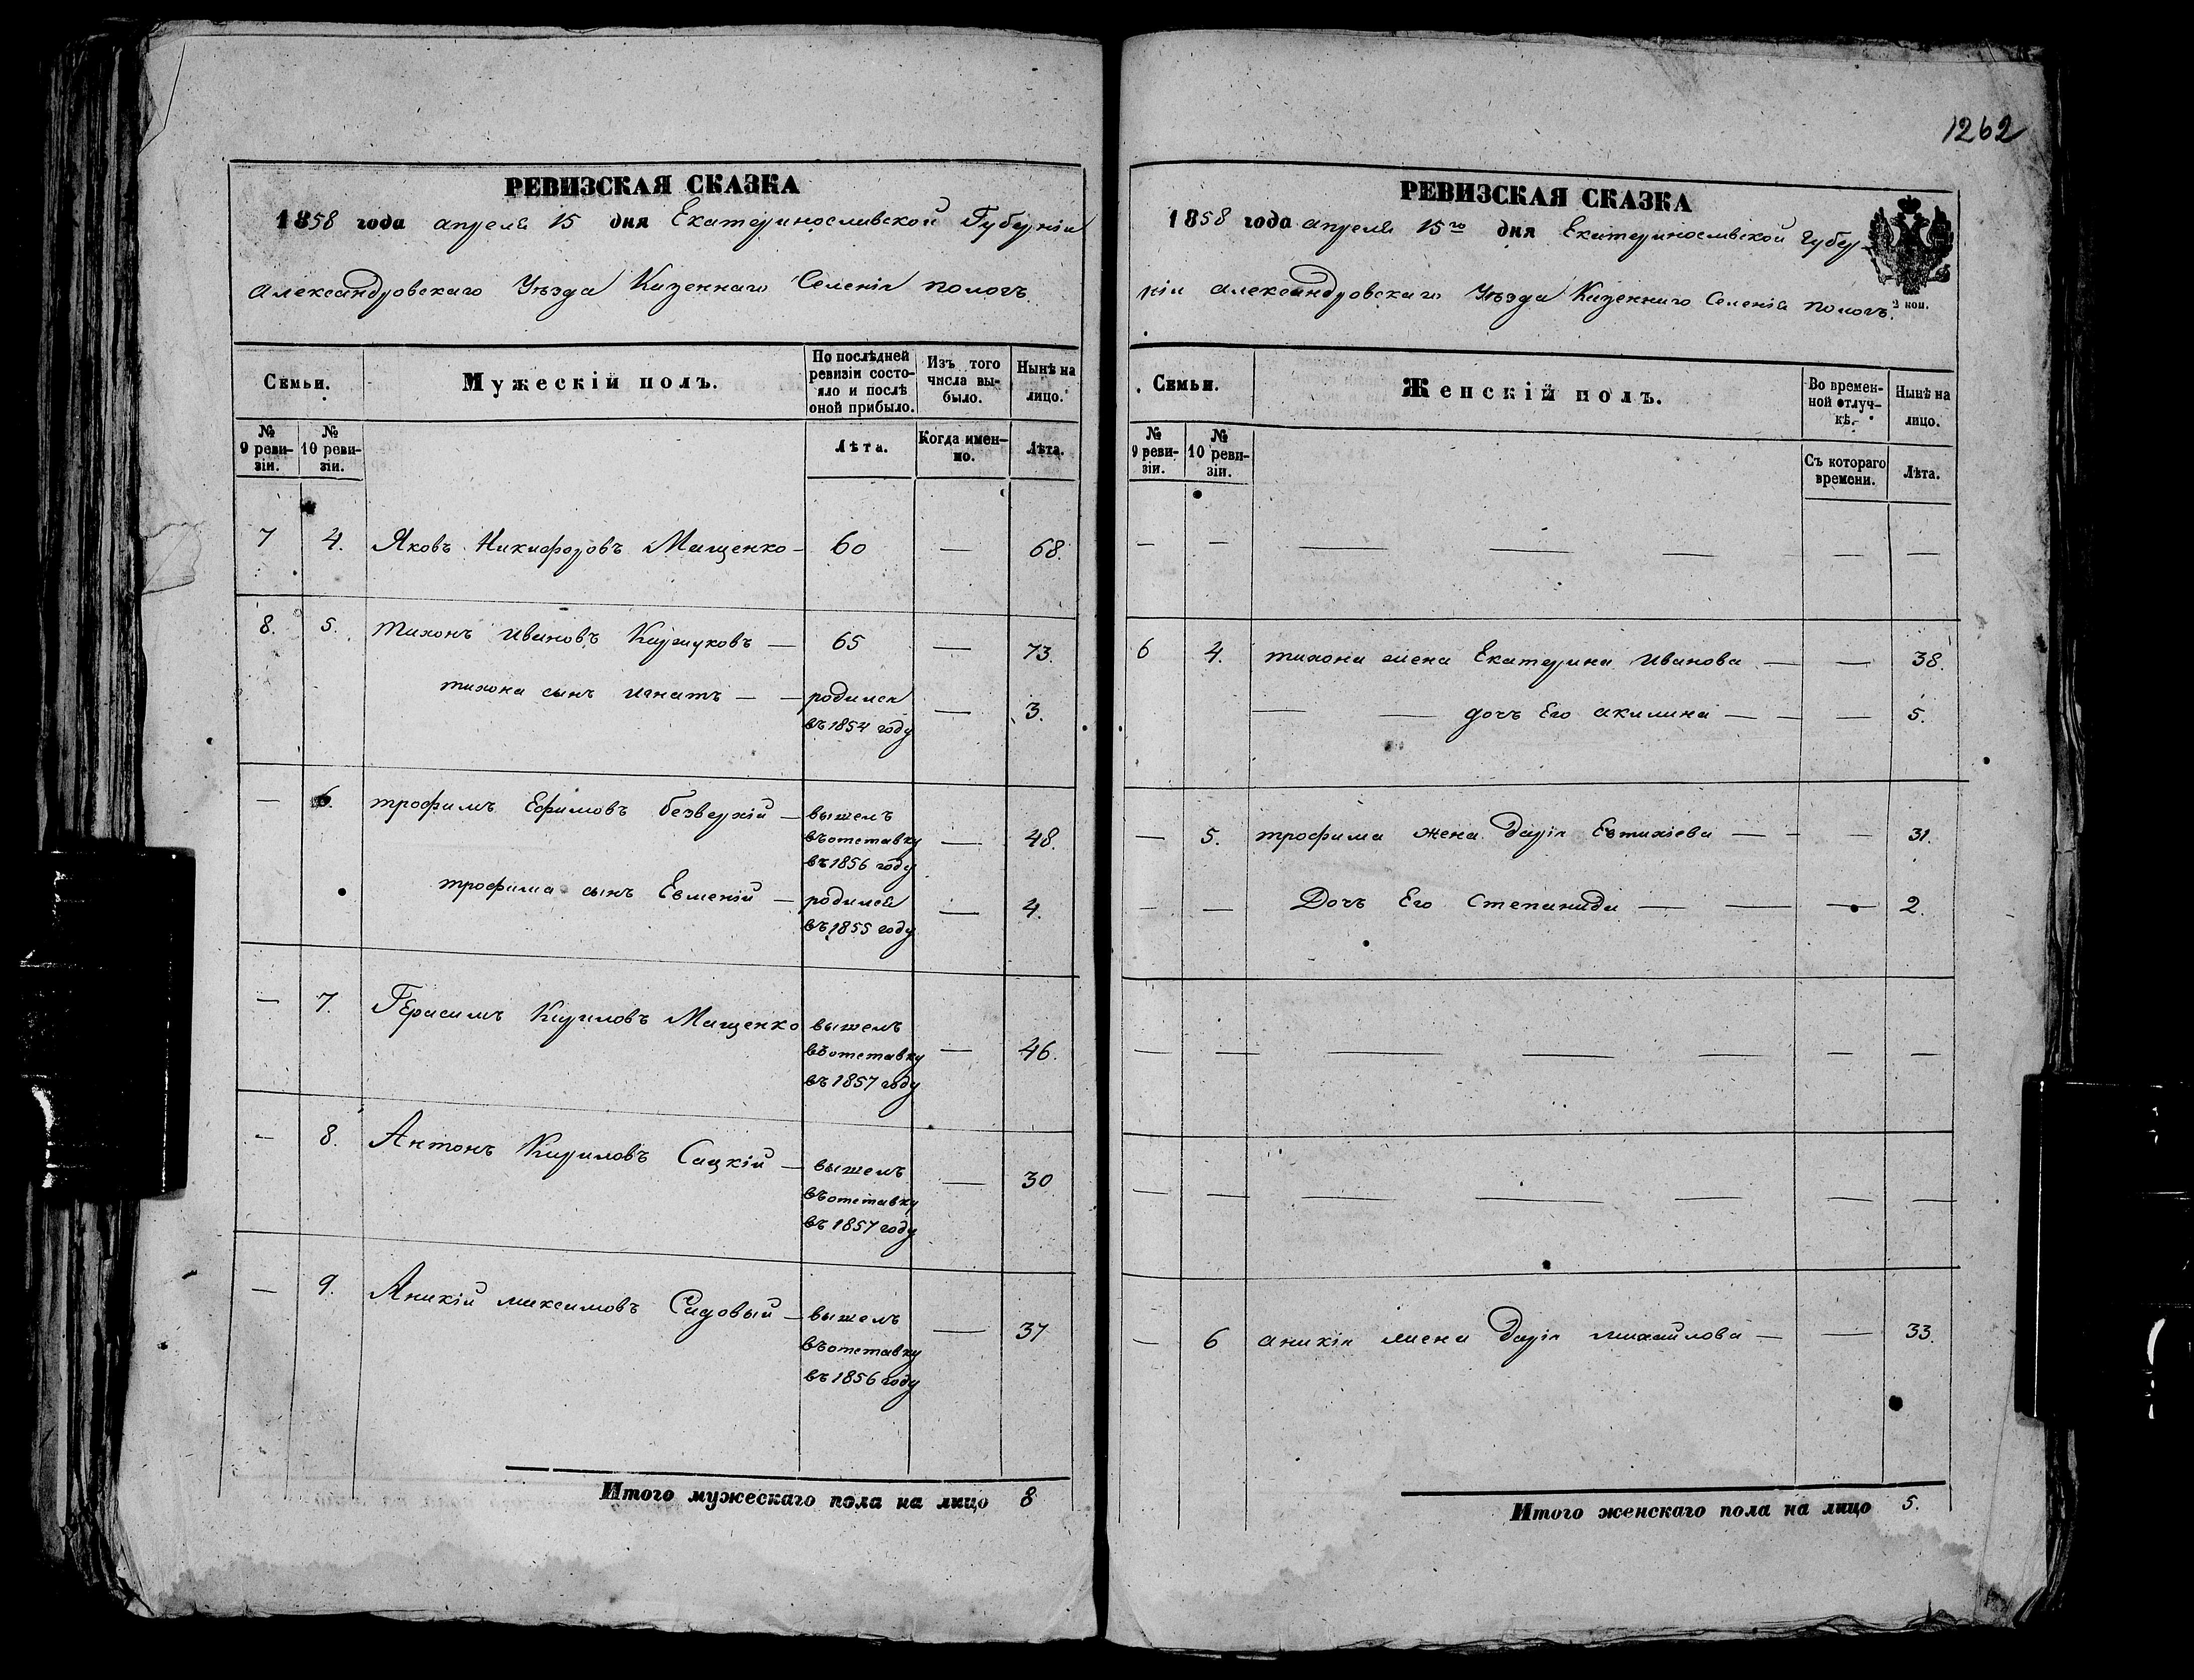 1262
РЕВИЗСКАЯ СКАЗКА
1858 года апреля 15 дня Екатеринославской Губерніи
Александровскаго Уѣзда Казеннаго Селенія пологъ.
Семьи.
Мужескій полъ.
По послѣдней ревизіи состояло и послѣ оной прибыло.
Изъ того числа выбыло.
Нынѣ на лицо.
№ 9 ревизіи.
№ 10 ревизіи.
Лѣта.
Когда именно.
Лѣта.
7 4. Яковъ Никифоровъ Мащенко — 60 — 68.
8. 5. тихонъ ивановъ — 65 — 73.
тихона сынъ игнатъ — — родился
въ 1854 году — 3.
— 6. трофимъ Ефимовъ безверхій — вышелъ
въ отставку — 48.
въ 1856 году
трофима сынъ Евменій — родился
въ 1855 году — 4.
— 7. Герасимъ Кириловъ Мащенко вышелъ
въ отставку — 46.
въ 1857 году
— 8. Антонъ Кириловъ Сацкій — вышелъ
въ отставку — 30
въ 1857 году
— 9. Аникій максимовъ Садовый — вышелъ
въ отставку — 37
въ 1856 году
Итого мужескаго пола на лицо 8
РЕВИЗСКАЯ СКАЗКА
1858 года апреля 15го дня Екатеринославской Губер-
ніи александровскаго Уѣзда Казеннаго Селенія пологъ.
2 коп.
Семьи.
Женскій полъ.
Во временной отлучкѣ.
Нынѣ на лицо.
№ 9 ревизіи.
№ 10 ревизіи.
Съ котораго времени.
Лѣта.
— — — — — — —
6 4. тихона жена Екатерина иванова — — 38.
— — дочь Его акилина — — — 5.
— 5. трофима жена Дарія Евтихіева — — — 31.
— — Дочь Его Степанида — — — 2.
— — — — — — —
— — — — — — —
— 6 аникія жена Дарія михайлова — — 33.
Итого женскаго пола на лицо 5.